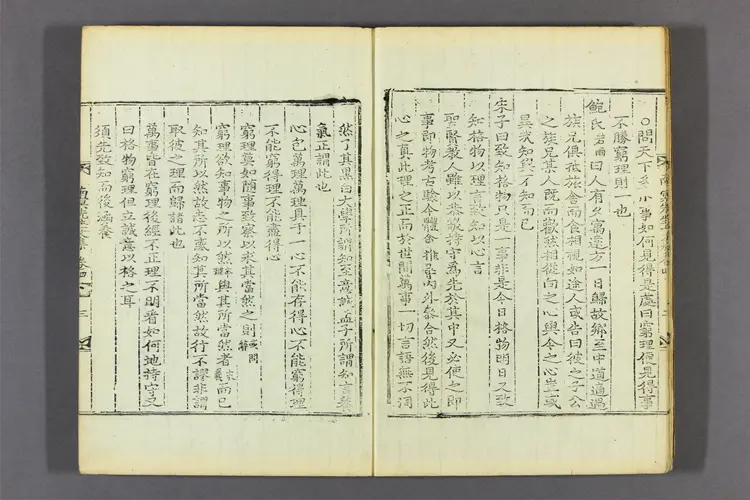 ○問天下多少事如何見得是處曰窮理便見得事
不勝窮理則一也
鮑氏若雨曰人有久寓遠方一日歸故鄉至中道適遇
族兄俱抵旅舍而食相視如途人或告曰彼之子公
之族兄某人旣而歡然相從向之心與今之心豈或
異哉知與不知而已
朱子曰致知格物只是一事非是今日格物明日又致
知格物以理言致知以心言
聖賢敎人雖以恭敬持守爲先於其中又必使之即
事即物考古驗今體會推尋內外參合然後見得此
心之眞此理之正而於世間萬事一切言語無不洞
然了其黑白大學所謂知至意誠孟子所謂知言養
氣正謂此也
心包萬理萬理具于一心不能存得心不能窮得理
不能窮得理不能盡得心
窮理莫如隨事致察以求其當然之則
窮理欲知事物之所以然與其所當然者而已
知其所以然故志不惑知其所當然故行不謬非謂
取彼之理而歸諸此也
萬事皆在窮理後經不正理不明看如何地持守又
曰格物窮理但立誠意以格之耳
須先致知而後涵養